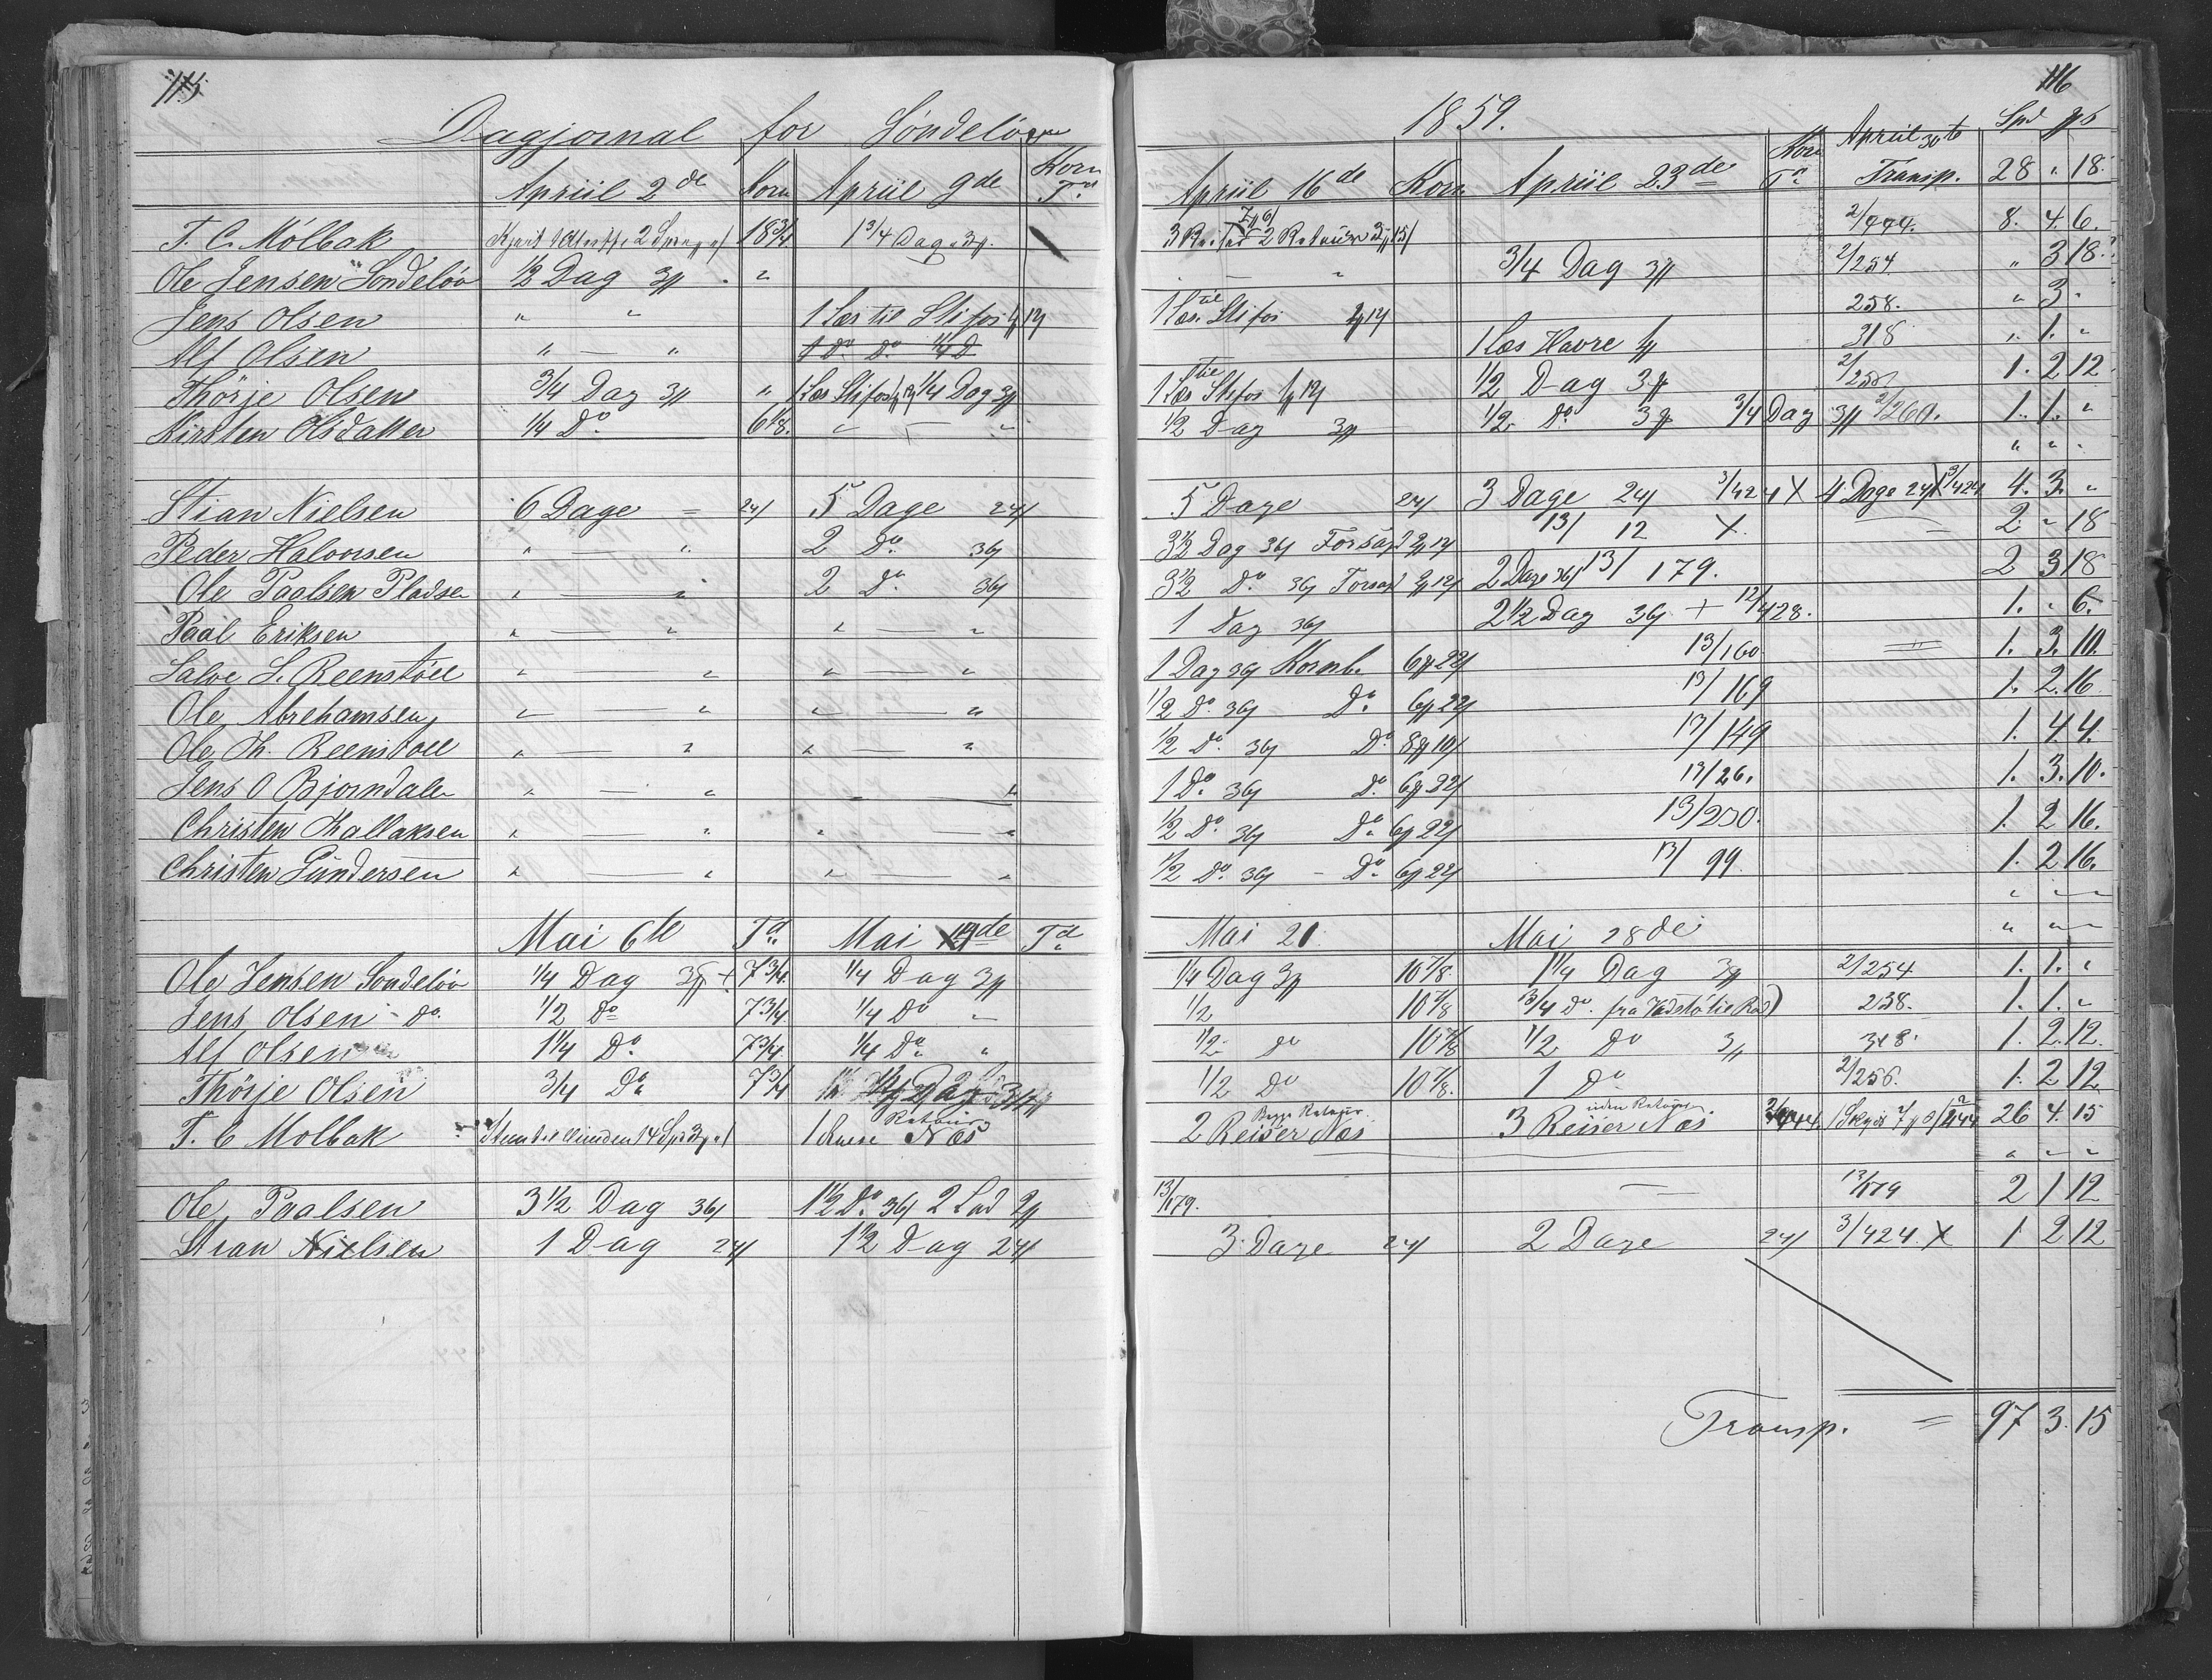 115
Dagjornal for Søndeløv
Apriil 2de Korn Apriil 9de Korn Td
T. C. Mölbak 2 18 3/4 1 3/4 Dag
Ole Jensen Sondelöv 1/2 Dag 3
Jens Olsen " " 1 Læs til Stifos 12
Alf Olsen " — " 1 Do Do 1/4 D
Thörje Olsen 3/4 Dag 3 " 1 Læs Stifos 1/4 Dag 3
Kirsten Olsdatter 1/4 Do 6 1/8 " — "
Stian Nielsen 6 Dage = 24 5 Dage 24
Peder Halvorsen " — " 2 Do 36
Ole Paalsen Pladsen " — " 2 Do 36
Paal Eriksen " — " " — "
Salve S. Reenstöll " — " " — "
Ole Abrehamsen " — " " — "
Ole Th. Reenstöll " — " " — "
Jens O Bjorndalen " — " " — "
Christen Thallaksen " — " " — "
Christen Gundersen " — " " — "
Mai 6te Td Mai de Td
Ole Jensen Sondelöv 1/4 Dag 3 + 7 3/4 1/4 Dag 3
Jens Olsen - Do 1/2 Do 7 3/4 1/4 Do "
Alf Olsen 1 1/4 Do 7 3/4 1/4 Do "
Thörje Olsen 3/4 Do 7 3/4
T. C Molbak 1 Næs
Ole Paalsen 3 1/2 Dag 36 1 1/2 Do 36 2 Lad 2
Stian Nielsen 1 Dag 24 1 1/2 Dag 24
116
1859.
Apriil 16de Korn Apriil 23de Korn Td Apriil 30te Transp. Spd 28 " 18
3 2 Retuur 2/444. 8. 4. 6.
" — " 3/4 Dag 3 2/254 " 3 18
1 Læs til Stifos 12 258. " 3 "
1 Læs Havre 318 " 1. "
1 Læs til Stifos 12 1/2 Dag 3 1. 2 12
1/2 Dag 3 1/2 Do 3 3/4 Dag 3 2/260. 1. 1. "
" " "
5 Dage 24 3 Dage 24 3/424 X 4 Dage 24 X 3/424 4. 3. "
3 1/2 Dag 36 13/12 X. 2 " 18
3 1/2 Do 36 2 Dage 36 13/179. 2 3 18
1 Dag 36 2 1/2 Dag 36 + 12/428. 1. " 6.
1 Dag 36 Kornb. 6 22 13/160 1. 3. 10.
1/2 Do 36 Do 6 22 13/169 1. 2. 16
1/2 Do 36 Do 8 10 13/149 1. 4. 4.
1 Do 36 Do 6 22 13/26. 1. 3. 10.
1/2 Do 36 Do 6 22 13/250. 1. 2 16.
1/2 Do 36 - Do 6 22 13/99. 1. 2 16.
" " "
Mai 21 Mai 28de " " "
1/4 Dag 3 10 7/8. 1 1/4 Dag 3 2/254 1. 1. "
1/2 10 7/8 3/4 Do fra 258. 1. 1. "
1/2 do 10 7/8 1/2 Do 3 318. 1. 2. 12.
1/2 Do 10 7/8. 1 Do 2/256. 1. 2 12
2 Reiser Næs 3 Reiser uden Retuur Næs 2/444 26 4. 15
" " "
13/179. 13/179 2 1 12
3 Dage 24 2 Dage 24 3/424 X 1 2 12
Transp. = 97 3. 15